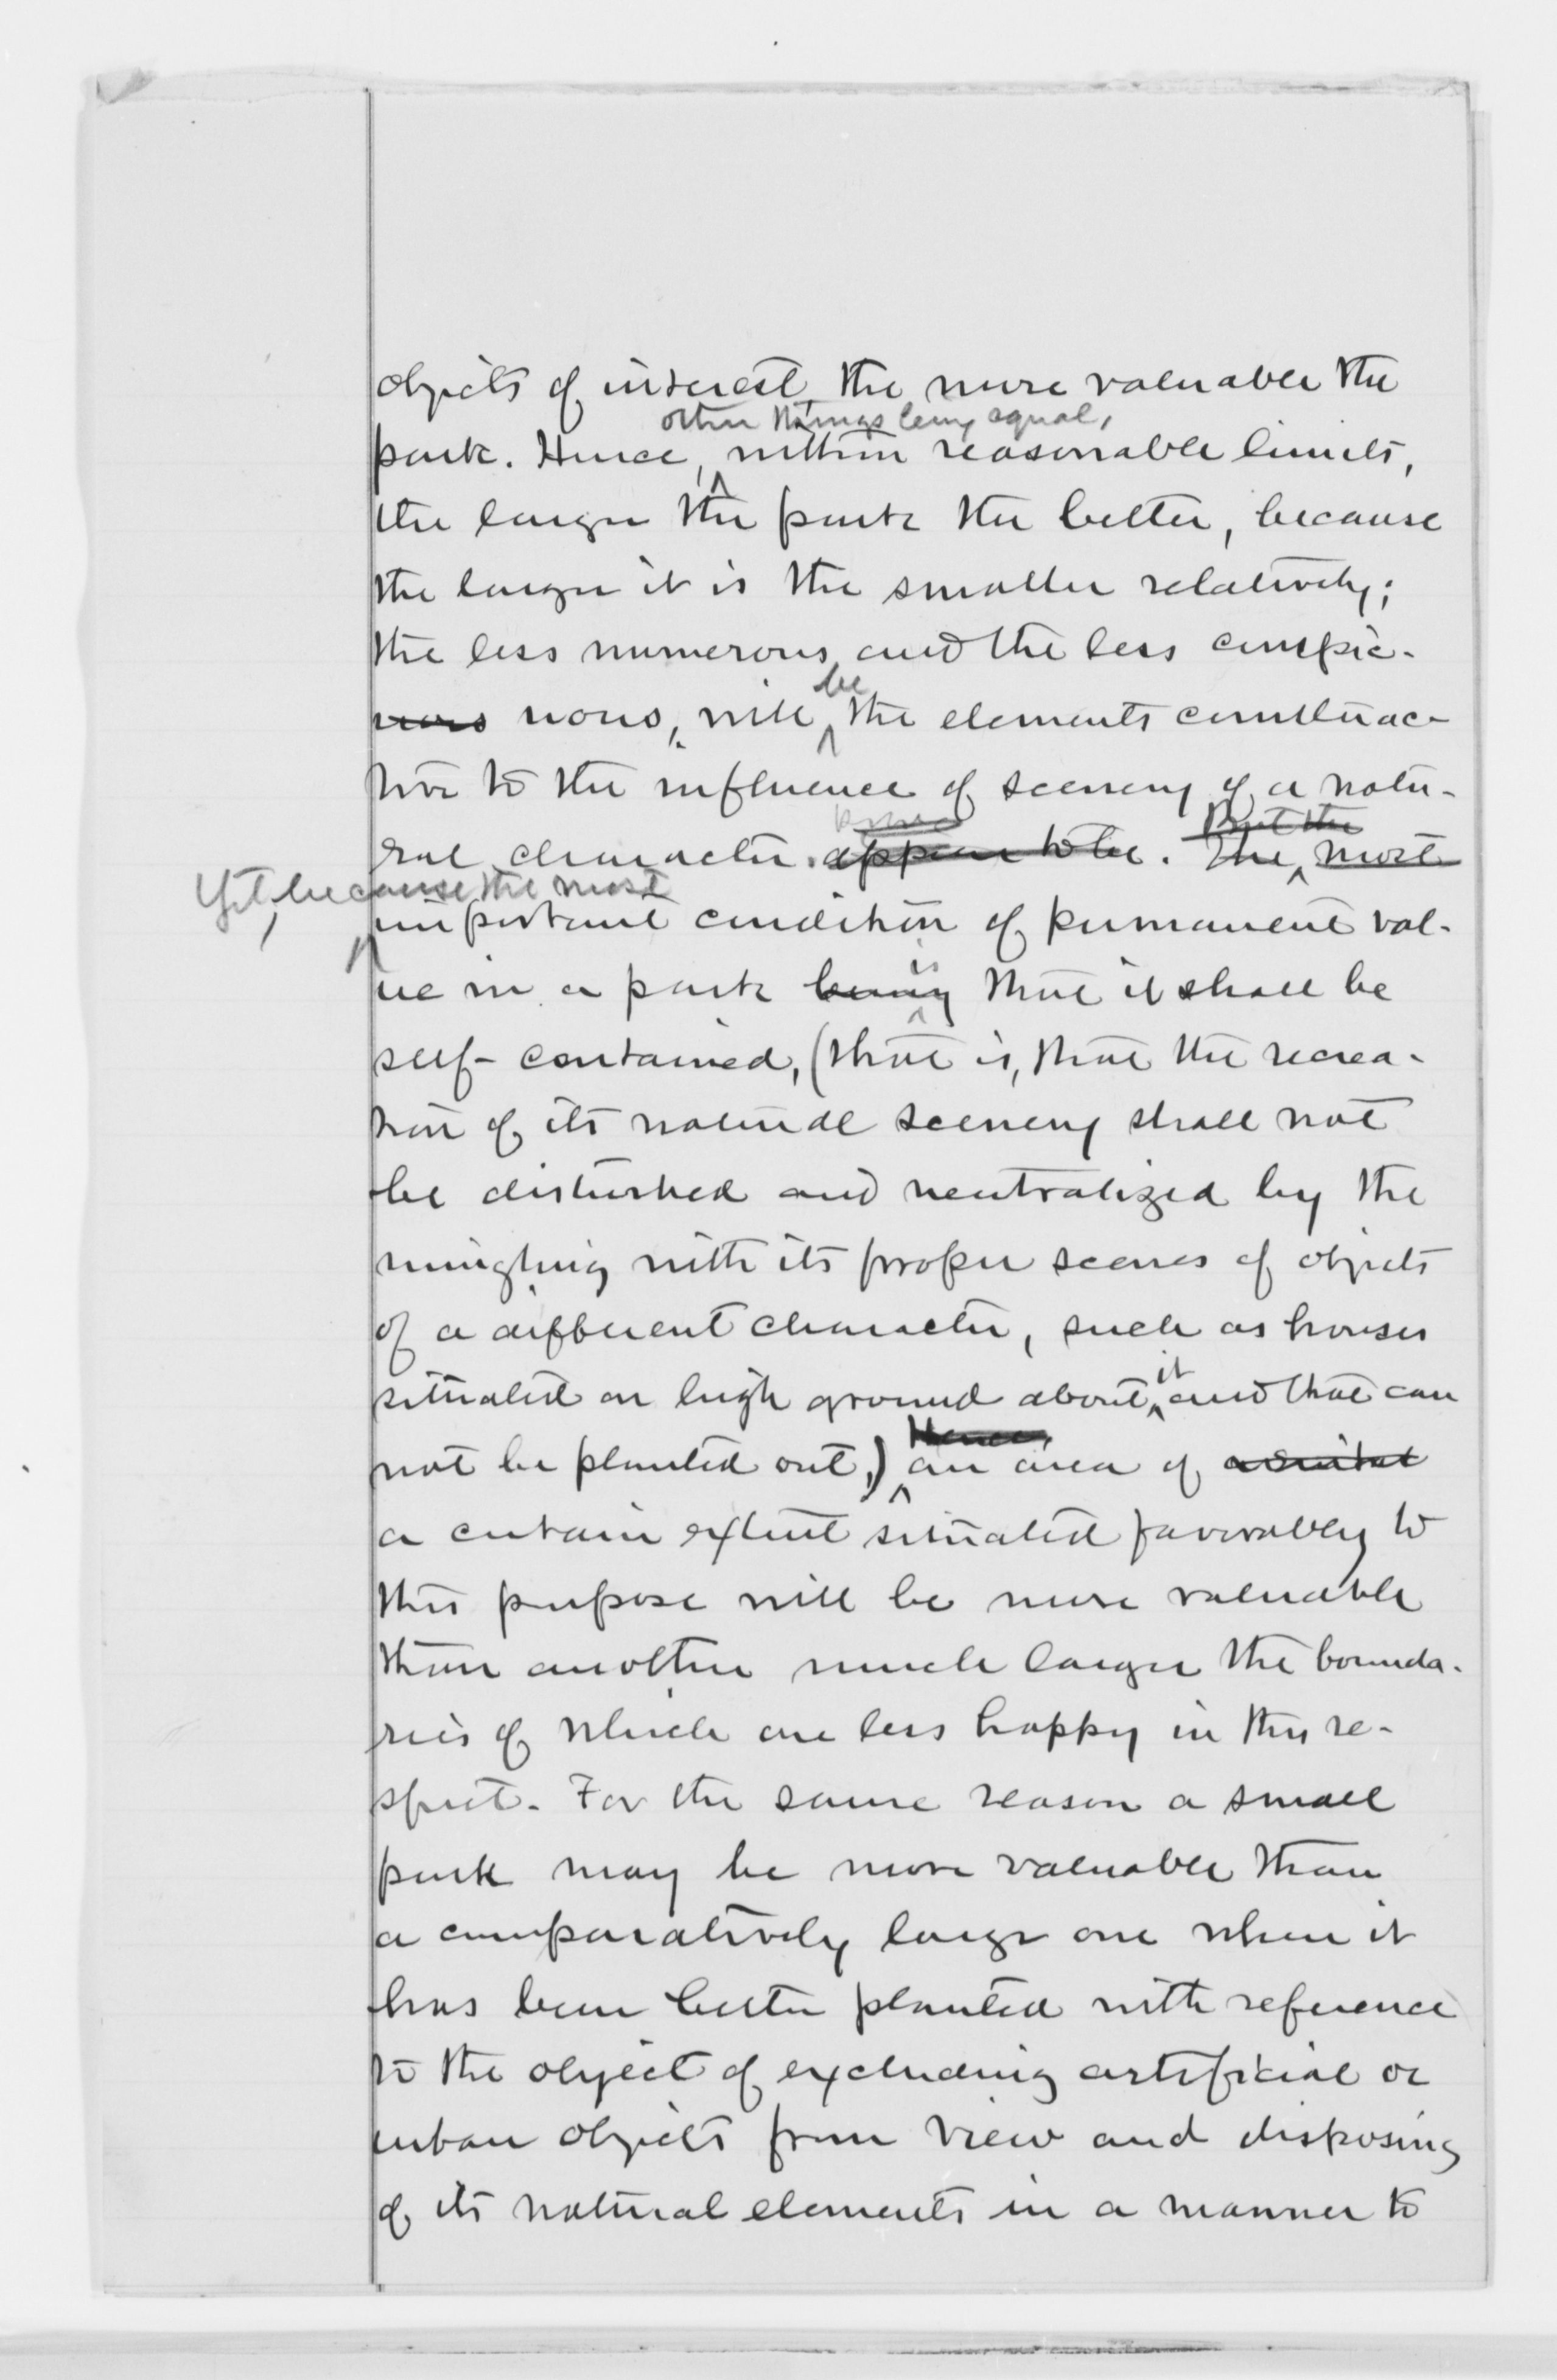 objects of interest, the more valuable the
other things being equal,
park. Hence, within reasonable limits,
the larger the park the better, because
the larger it is the smaller relatively;
the less numerous and the less conspic-
be
uous uous, will the elements counterac-
tive to the influence of scenery of a natu-
But the
ral character. appear to be. The most
Yet, because the most
important condition of permanent val-
is
ue in a park being that it shall be
self-contained, (that is, that the recrea-
tion of its natural scenery shall not
be disturbed and neutralized by the
mingling with its proper scenes of objects
of a different character, such as houses
it
situated on high ground about and that can
Hence,
not be planted out,) an area of
a certain extent situated favorably to
this purpose will be more valuable
than another much larger the bounda-
ries of which are less happy in this re-
spect. For the same reason a small
park may be more valuable than
a comparatively large one when it
has been better planted with reference
to the object of excluding artificial or
urban objects from view and disposing
of its natural elements in a manner to